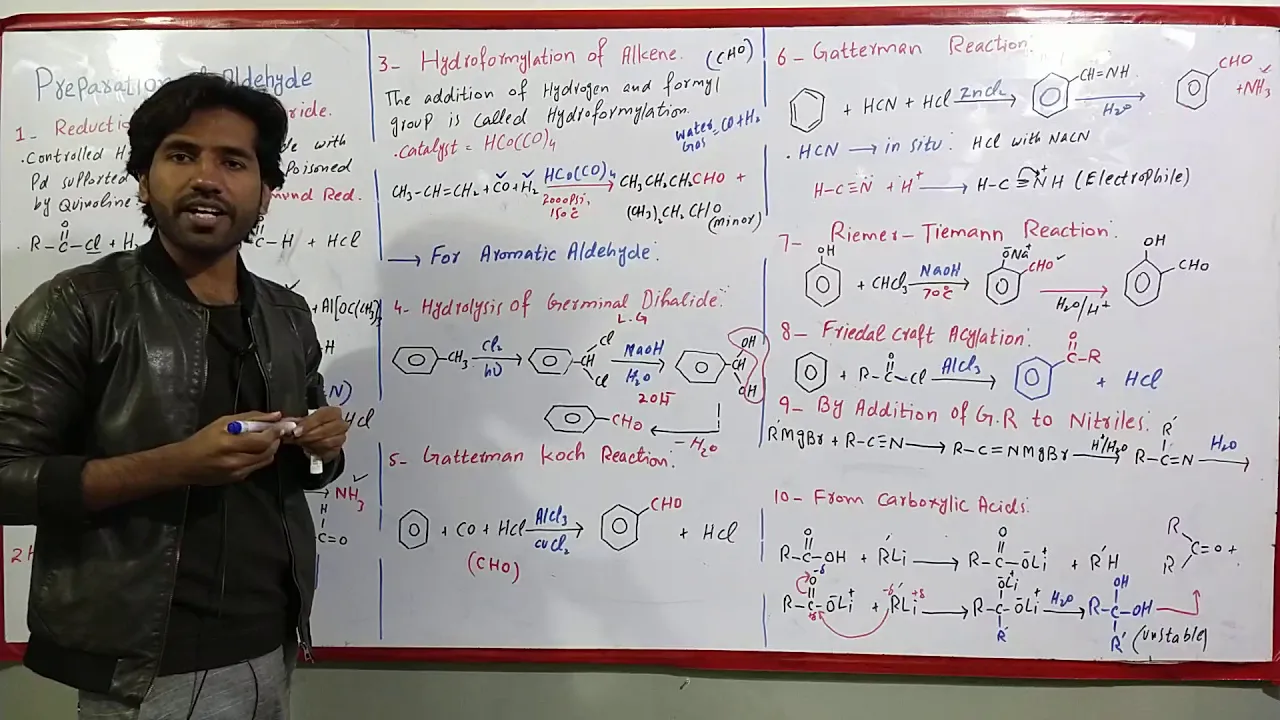 Preparation of Aldehyde
1- Reduc
ride.
.Controlled H
de with
Pd supported
Poisoned
by Quinoline
mund Red.
. R-C-Cl + H₂
O
C-H + HCl
+ Al[OC(CH₃)₃
H
N)
HCl
→ NH₃
H
C=O
2H
3- Hydroformylation of Alkene. (CHO)
The addition of Hydrogen and formyl
group is called Hydroformylation.
.Catalyst = HCo(CO)₄
water gas = CO+H₂
CH₃-CH=CH₂ + CO + H₂ HCo(CO)₄ → CH₃CH₂CH₂CHO +
2000Psi, 150°C
(CH₃)₂CH₂CHO (minor)
→ For Aromatic Aldehyde:
4- Hydrolysis of Germinal Dihalide:
L.G
-CH₃ Cl₂ → -CH Cl Cl NaOH → -CH OH OH
hυ
H₂O
2OH⁻
-CHO ← -H₂O
5- Gatterman Koch Reaction:
+ CO + HCl AlCl₃ → CHO + HCl
CuCl₂
(CHO)
6- Gatterman Reaction:
+ HCN + HCl ZnCl₂ → CH=NH → CHO
H₂O
+NH₃
. HCN → in situ: HCl with NaCN
H-C≡N + H⁺ → H-C≡N⁺H (Electrophile)
7- Riemer-Tiemann Reaction:
OH + CHCl₃ NaOH → ŌNa⁺ CHO → OH CHO
70°C
H₂O/H⁺
8- Friedal Craft Acylation:
+ R-C-Cl AlCl₃ → C-R + HCl
O
O
9- By Addition of G.R to Nitriles.
R'MgBr + R-C≡N → R-C=NMgBr H⁺/H₂O → R-C=N H₂O →
R'
10- From Carboxylic Acids:
O
R-C-OH + R'Li → R-C-ŌLi⁺ + R'H
O
R
R' C=O +
R-C-ŌLi⁺ + R'Li → R-C-ŌLi⁺ H₂O → R-C-OH →
O
-δ
+δ
-δ
+δ
ŌLi⁺
R'
OH
R' (unstable)